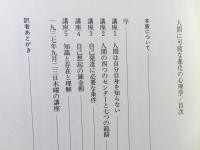 人間に可能な進化の心理学/目次
本版について
序
講座1 人間は自分自身を知らない
講座2 人間の四つのセンターと七つの範疇
講座3 自己発達に必要な条件
講座4 自己想起の錬金術
講座5 知識と存在と理解
一九三七年九月二三日木曜の講座
訳者あとがき